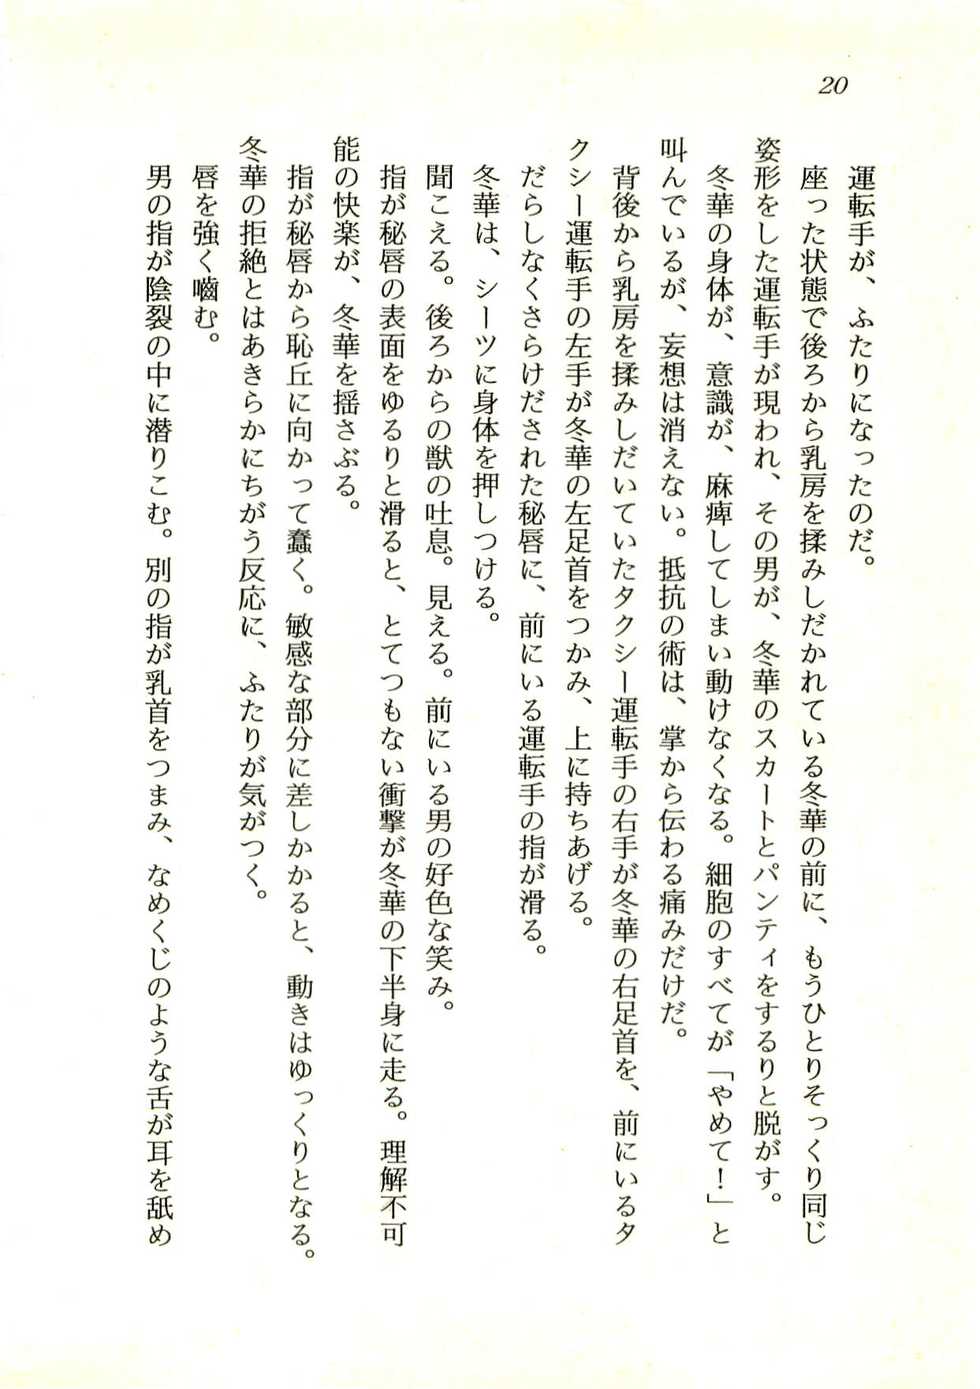 20
運転手が、ふたりになったのだ。
座った状態で後ろから乳房を揉みしだかれている冬華の前に、もうひとりそっくり同じ
姿形をした運転手が現われ、その男が、冬華のスカートとパンティをするりと脱がす。
冬華の身体が、意識が、麻痺してしまい動けなくなる。細胞のすべてが「やめて！」と
叫んでいるが、妄想は消えない。抵抗の術は、掌から伝わる痛みだけだ。
背後から乳房を揉みしだいていたタクシー運転手の右手が冬華の右足首を、前にいるタ
クシー運転手の左手が冬華の左足首をつかみ、上に持ちあげる。
だらしなくさらけだされた秘唇に、前にいる運転手の指が滑る。
冬華は、シーツに身体を押しつける。
聞こえる。後ろからの獣の吐息。見える。前にいる男の好色な笑み。
指が秘唇の表面をゆるりと滑ると、とてつもない衝撃が冬華の下半身に走る。理解不可
能の快楽が、冬華を揺さぶる。
指が秘唇から恥丘に向かって蠢く。敏感な部分に差しかかると、動きはゆっくりとなる。
冬華の拒絶とはあきらかにちがう反応に、ふたりが気がつく。
唇を強く嚙む。
男の指が陰裂の中に潜りこむ。別の指が乳首をつまみ、なめくじのような舌が耳を舐め